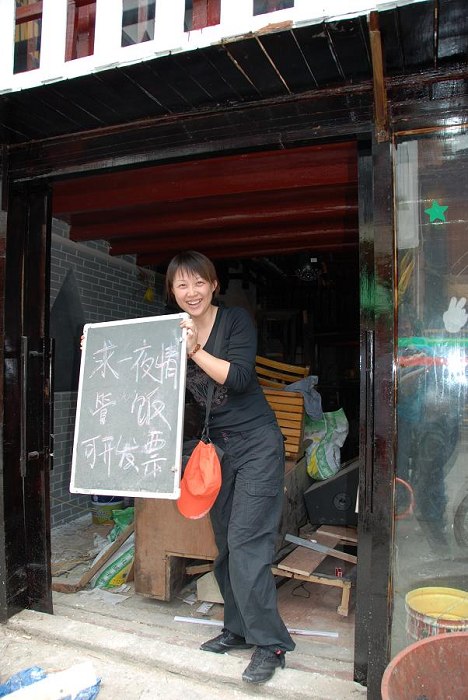 求一夜情
管饭
可开发票